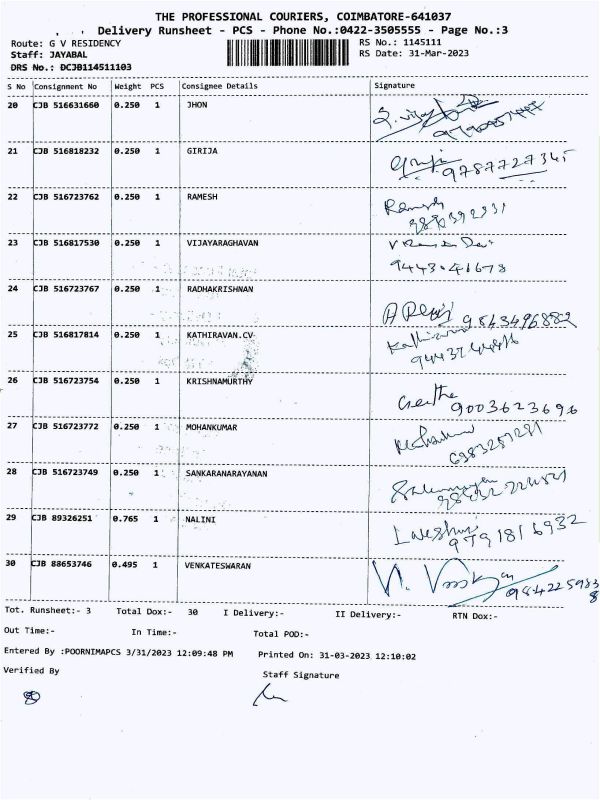 THE PROFESSIONAL COURIERS, COIMBATORE-641037
Delivery Runsheet - PCS - Phone No.:0422-3505555 - Page No.:3
Route: G V RESIDENCY
RS No.: 1145111
Staff: JAYABAL
RS Date: 31-Mar-2023
DRS No.: DCJB114511103
S No Consignment No Weight PCS Consignee Details Signature
20 CJB 516631660 0.250 1 JHON
21 CJB 516818232 0.250 1 GIRIJA
9787727345
22 CJB 516723762 0.250 1 RAMESH
Ramesh
23 CJB 516817530 0.250 1 VIJAYARAGHAVAN
24 CJB 516723767 0.250 1 RADHAKRISHNAN
9843496882
25 CJB 516817814 0.250 1 KATHIRAVAN.CV
26 CJB 516723754 0.250 1 KRISHNAMURTHY
Geetha
9003623696
27 CJB 516723772 0.250 1 MOHANKUMAR
28 CJB 516723749 0.250 1 SANKARANARAYANAN
29 CJB 89326251 0.765 1 NALINI
9791816932
30 CJB 88653746 0.495 1 VENKATESWARAN
9842259838
Tot. Runsheet:- 3 Total Dox:- 30 I Delivery:- II Delivery:- RTN Dox:-
Out Time:- In Time:- Total POD:-
Entered By :POORNIMAPCS 3/31/2023 12:09:48 PM Printed On: 31-03-2023 12:10:02
Verified By Staff Signature